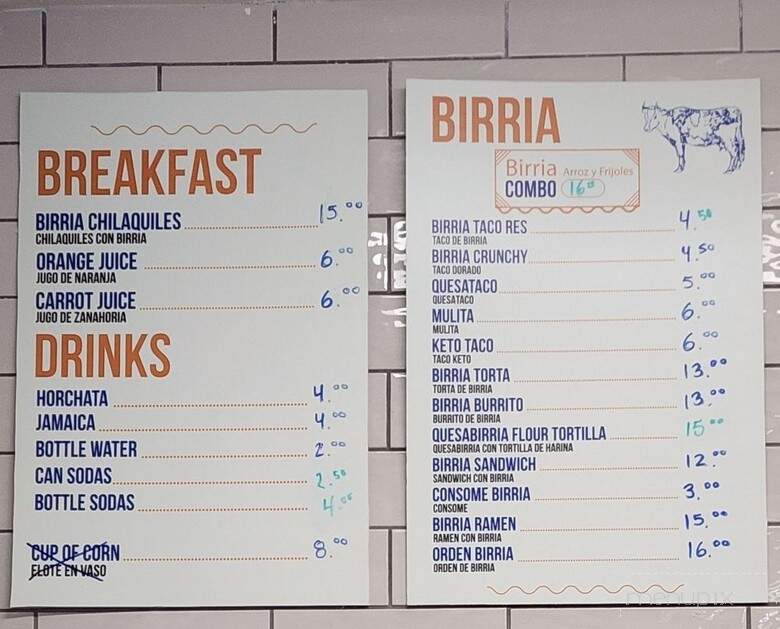 BREAKFAST
BIRRIA CHILAQUILES 15.00
CHILAQUILES CON BIRRIA
ORANGE JUICE 6.00
JUGO DE NARANJA
CARROT JUICE 6.00
JUGO DE ZANAHORIA
DRINKS
HORCHATA 4.00
JAMAICA 4.00
BOTTLE WATER 2.00
CAN SODAS 2.50
BOTTLE SODAS 4.00
CUP OF CORN 8.00
ELOTE EN VASO
BIRRIA
Birria Arroz y Frijoles
COMBO 16.00
BIRRIA TACO RES 4.50
TACO DE BIRRIA
BIRRIA CRUNCHY 4.50
TACO DORADO
QUESATACO 5.00
QUESATACO
MULITA 6.00
MULITA
KETO TACO 6.00
TACO KETO
BIRRIA TORTA 13.00
TORTA DE BIRRIA
BIRRIA BURRITO 13.00
BURRITO DE BIRRIA
QUESABIRRIA FLOUR TORTILLA 15.00
QUESABIRRIA CON TORTILLA DE HARINA
BIRRIA SANDWICH 12.00
SANDWICH CON BIRRIA
CONSOME BIRRIA 3.00
CONSOME
BIRRIA RAMEN 15.00
RAMEN CON BIRRIA
ORDEN BIRRIA 16.00
ORDEN DE BIRRIA
menupix